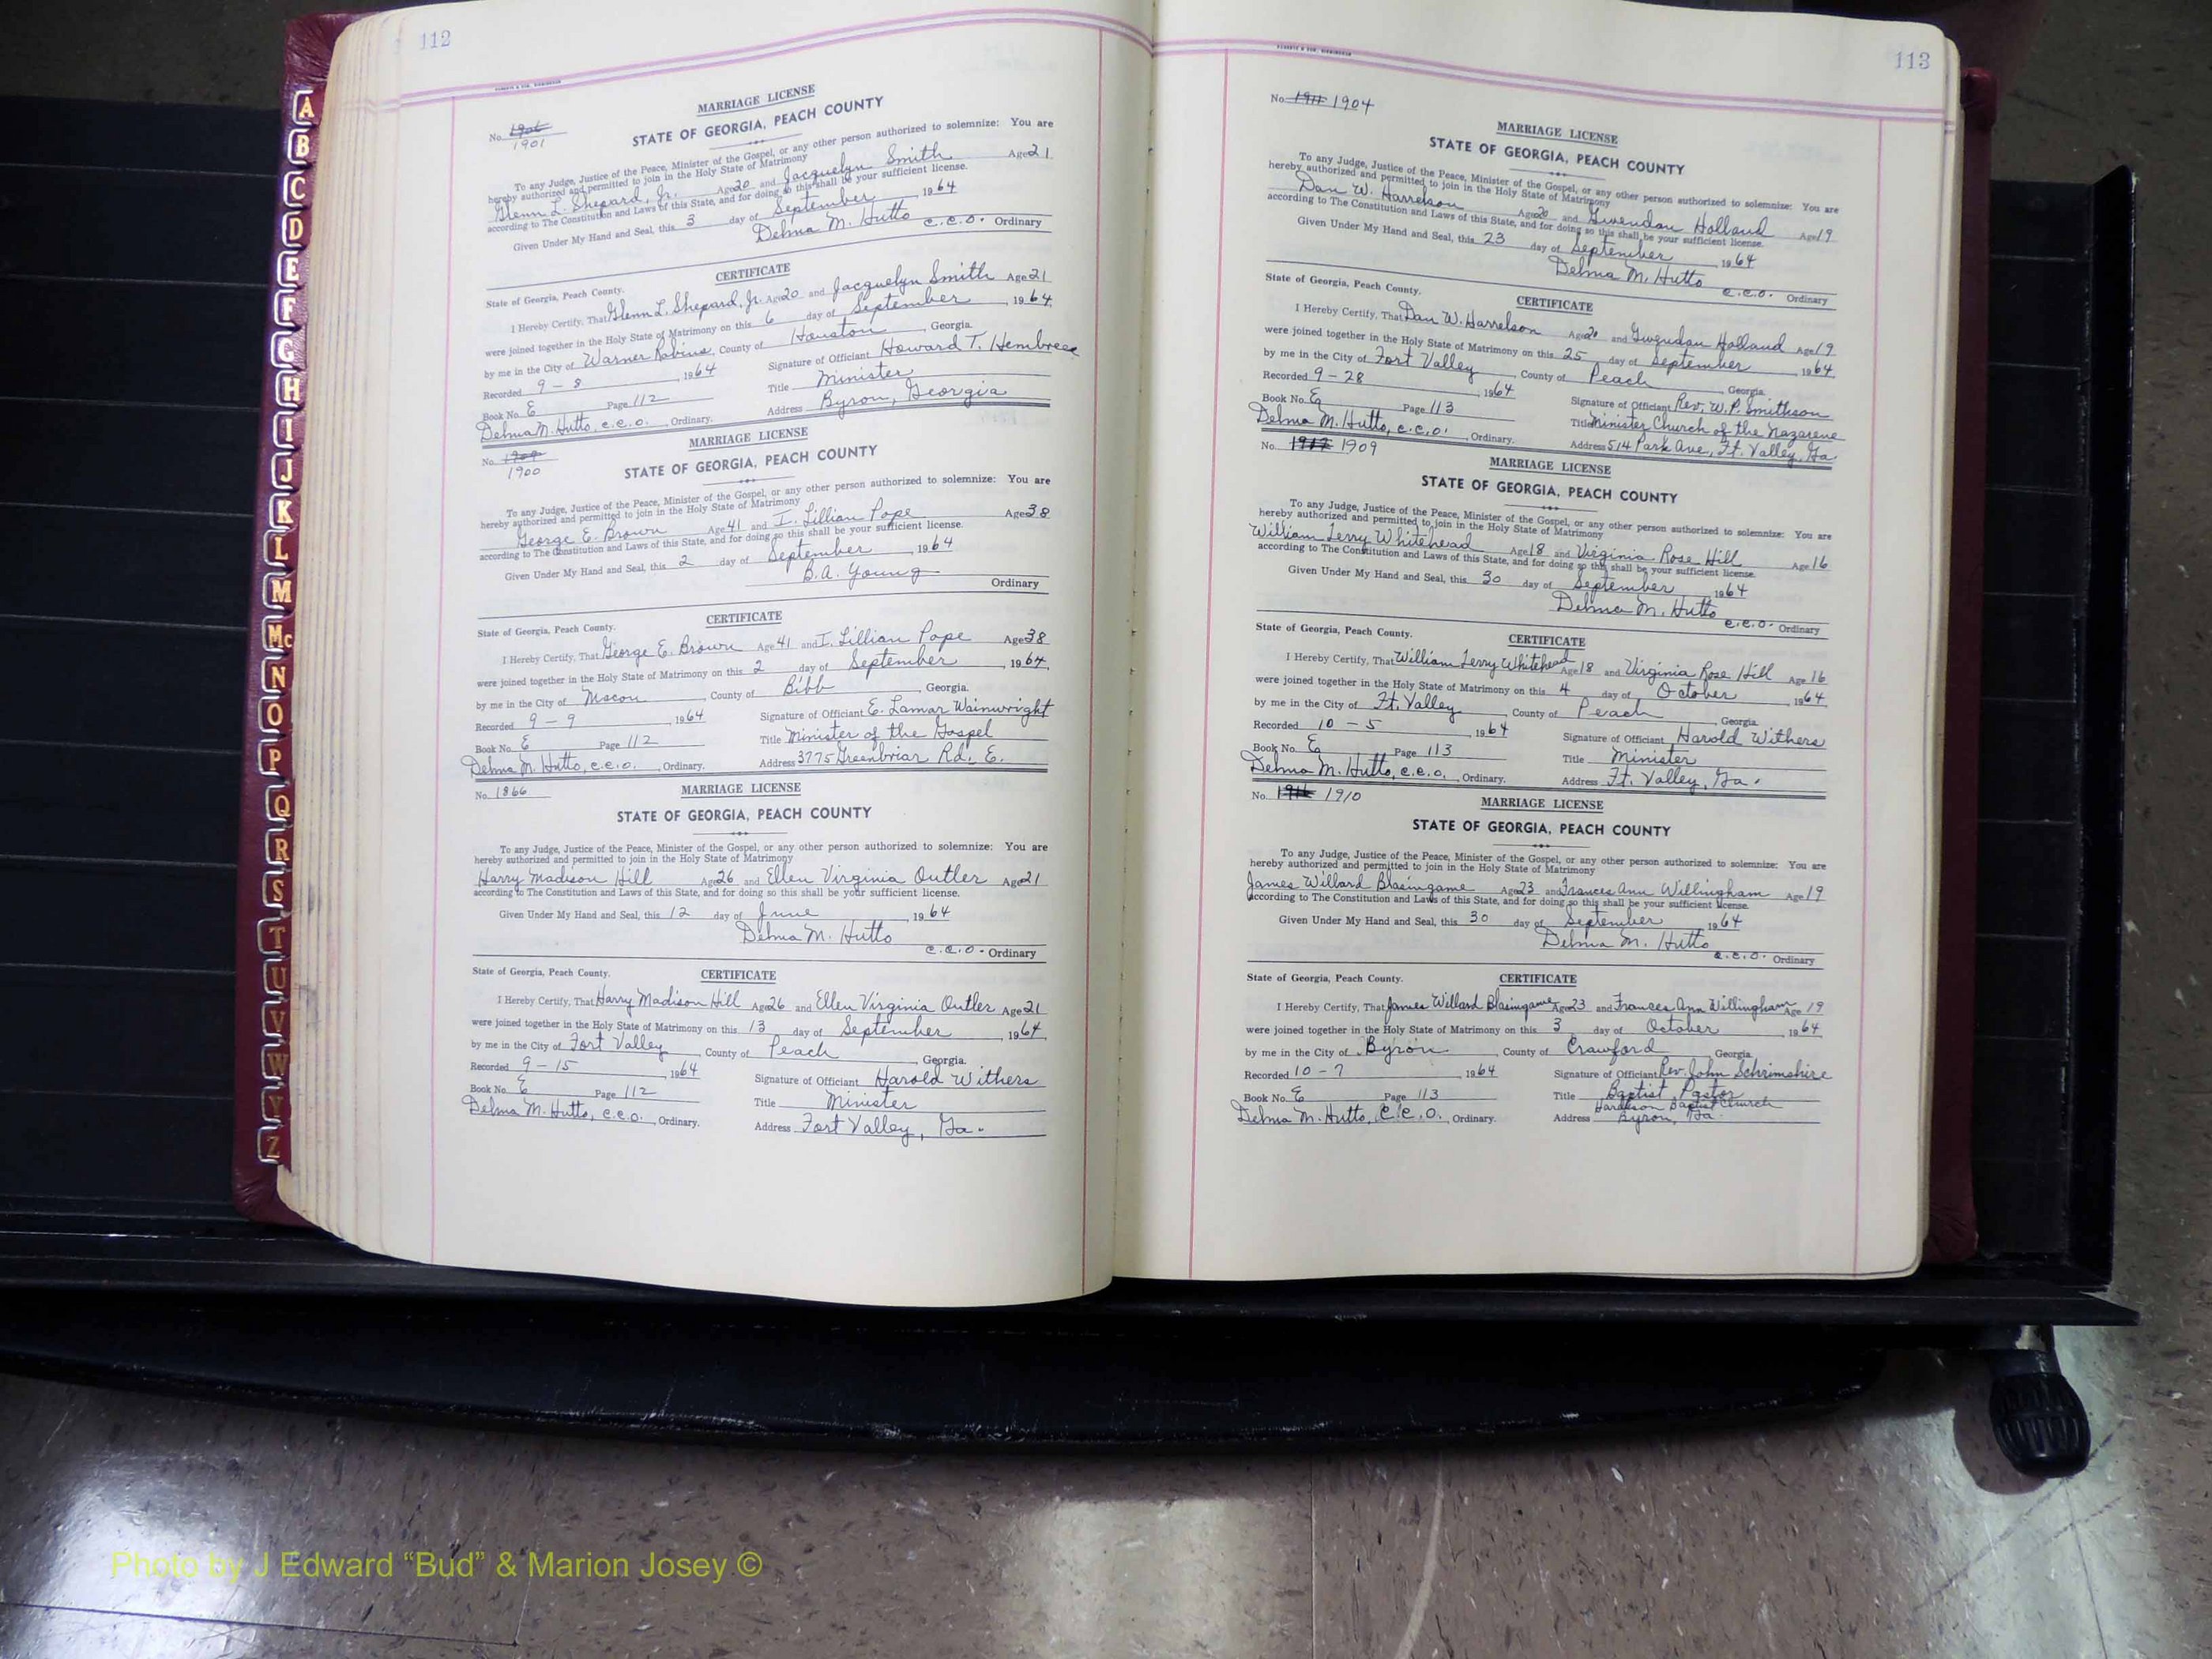 112
No. 1901
MARRIAGE LICENSE
STATE OF GEORGIA, PEACH COUNTY
To any Judge, Justice of the Peace, Minister of the Gospel, or any other person authorized to solemnize: You are
hereby authorized and permitted to join in the Holy State of Matrimony
Glenn L. Shepard, Jr. Age 20 and Jacquelyn Smith Age 21
according to The Constitution and Laws of this State, and for doing so this shall be your sufficient license.
Given Under My Hand and Seal, this 3 day of September, 1964
Delma M. Hutto
c.c.o. Ordinary
CERTIFICATE
State of Georgia, Peach County.
I Hereby Certify, That Glenn L. Shepard, Jr. Age 20 and Jacquelyn Smith Age 21
were joined together in the Holy State of Matrimony on this 6 day of September, 1964
by me in the City of Warner Robins, County of Houston, Georgia.
Recorded 9-8, 1964 Signature of Officiant Howard T. Hembree
Book No. E Page 112 Title Minister
Delma M. Hutto, c.c.o., Ordinary. Address Byron, Georgia
MARRIAGE LICENSE
No. 1900
STATE OF GEORGIA, PEACH COUNTY
To any Judge, Justice of the Peace, Minister of the Gospel, or any other person authorized to solemnize: You are
hereby authorized and permitted to join in the Holy State of Matrimony
George E. Brown Age 41 and I. Lillian Pope Age 38
according to The Constitution and Laws of this State, and for doing so this shall be your sufficient license.
Given Under My Hand and Seal, this 2 day of September, 1964
B.A. Young
Ordinary
CERTIFICATE
State of Georgia, Peach County.
I Hereby Certify, That George E. Brown Age 41 and I. Lillian Pope Age 38
were joined together in the Holy State of Matrimony on this 2 day of September, 1964,
by me in the City of Macon, County of Bibb, Georgia.
Recorded 9-9, 1964 Signature of Officiant E. Lamar Wainwright
Book No. E Page 112 Title Minister of the Gospel
Delma M. Hutto, c.c.o., Ordinary. Address 3775 Greenbriar Rd., E.
No. 1866 MARRIAGE LICENSE
STATE OF GEORGIA, PEACH COUNTY
To any Judge, Justice of the Peace, Minister of the Gospel, or any other person authorized to solemnize: You are
hereby authorized and permitted to join in the Holy State of Matrimony
Harry Madison Hill Age 26 and Ellen Virginia Outler Age 21
according to The Constitution and Laws of this State, and for doing so this shall be your sufficient license.
Given Under My Hand and Seal, this 12 day of June, 1964
Delma M. Hutto
c.c.o. Ordinary
State of Georgia, Peach County. CERTIFICATE
I Hereby Certify, That Harry Madison Hill Age 26 and Ellen Virginia Outler Age 21
were joined together in the Holy State of Matrimony on this 13 day of September, 1964,
by me in the City of Fort Valley, County of Peach, Georgia.
Recorded 9-15, 1964 Signature of Officiant Harold Withers
Book No. E Page 112 Title Minister
Delma M. Hutto, c.c.o., Ordinary. Address Fort Valley, Ga.
113
No. 1904
MARRIAGE LICENSE
STATE OF GEORGIA, PEACH COUNTY
To any Judge, Justice of the Peace, Minister of the Gospel, or any other person authorized to solemnize: You are
hereby authorized and permitted to join in the Holy State of Matrimony
Dan W. Harrelson Age 20 and Gwendan Holland Age 19
according to The Constitution and Laws of this State, and for doing so this shall be your sufficient license.
Given Under My Hand and Seal, this 23 day of September, 1964
Delma M. Hutto
c.c.o. Ordinary
State of Georgia, Peach County. CERTIFICATE
I Hereby Certify, That Dan W. Harrelson Age 20 and Gwendan Holland Age 19
were joined together in the Holy State of Matrimony on this 25 day of September, 1964,
by me in the City of Fort Valley, County of Peach, Georgia.
Recorded 9-28, 1964 Signature of Officiant Rev. W.P. Smithson
Book No. E Page 113 Title Minister Church of the Nazarene
Delma M. Hutto, c.c.o., Ordinary. Address 514 Park Ave., Ft. Valley, Ga.
No. 1909
MARRIAGE LICENSE
STATE OF GEORGIA, PEACH COUNTY
To any Judge, Justice of the Peace, Minister of the Gospel, or any other person authorized to solemnize: You are
hereby authorized and permitted to join in the Holy State of Matrimony
William Terry Whitehead Age 18 and Virginia Rose Hill Age 16
according to The Constitution and Laws of this State, and for doing so this shall be your sufficient license.
Given Under My Hand and Seal, this 30 day of September, 1964
Delma M. Hutto
c.c.o. Ordinary
State of Georgia, Peach County. CERTIFICATE
I Hereby Certify, That William Terry Whitehead Age 18 and Virginia Rose Hill Age 16
were joined together in the Holy State of Matrimony on this 4 day of October, 1964,
by me in the City of Ft. Valley, County of Peach, Georgia.
Recorded 10-5, 1964 Signature of Officiant Harold Withers
Book No. E Page 113 Title Minister
Delma M. Hutto, c.c.o., Ordinary. Address Ft. Valley, Ga.
No. 1910 MARRIAGE LICENSE
STATE OF GEORGIA, PEACH COUNTY
To any Judge, Justice of the Peace, Minister of the Gospel, or any other person authorized to solemnize: You are
hereby authorized and permitted to join in the Holy State of Matrimony
James Willard Blasingame Age 23 and Frances Ann Willingham Age 19
according to The Constitution and Laws of this State, and for doing so this shall be your sufficient license.
Given Under My Hand and Seal, this 30 day of September, 1964
Delma M. Hutto
c.c.o. Ordinary
State of Georgia, Peach County. CERTIFICATE
I Hereby Certify, That James Willard Blasingame Age 23 and Frances Ann Willingham Age 19
were joined together in the Holy State of Matrimony on this 3 day of October, 1964,
by me in the City of Byron, County of Crawford, Georgia.
Recorded 10-7, 1964 Signature of Officiant Rev. John Schrimshire
Book No. E Page 113 Title Baptist Pastor
Baptist Church
Delma M. Hutto, c.c.o., Ordinary. Address Byron, Ga.
A
B
C
D
E
F
G
H
I
J
K
L
M
Mc
N
O
P
Q
R
S
T
U
V
W
Y
Z
Photo by J Edward “Bud” & Marion Josey ©